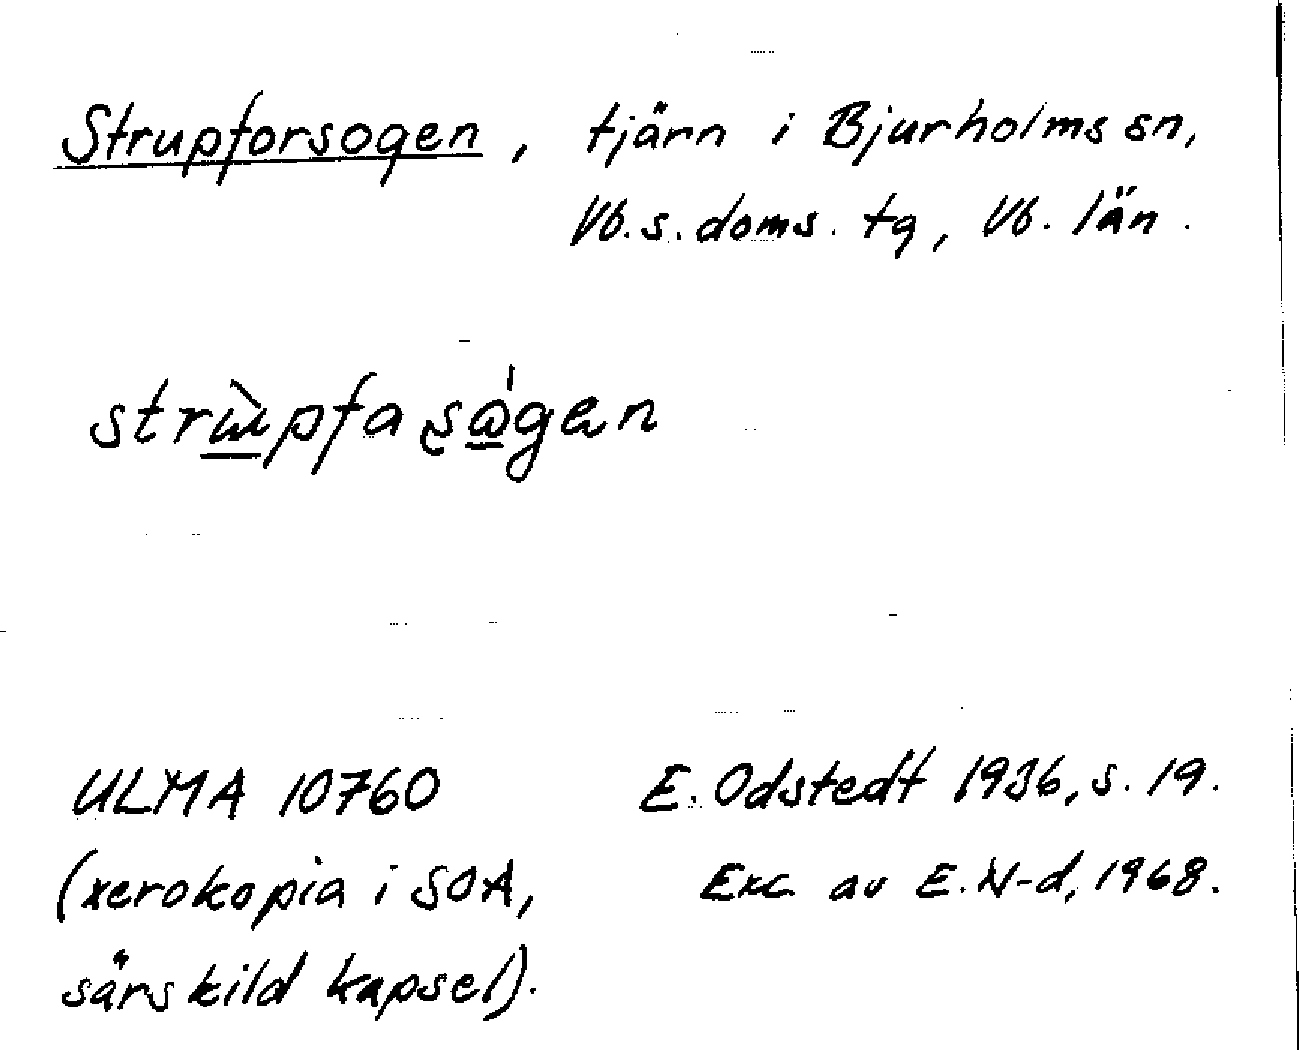 Strupforsogen, tjärn i Bjurholms sn,
Vb. s. doms. tg, Vb. län.
strɯ̀pfaʂω̍gən
ULMA 10760
E. Odstedt 1936, s. 19.
(xerokopia i SOA,
Exc. av E. W-d, 1968.
särskild kapsel).